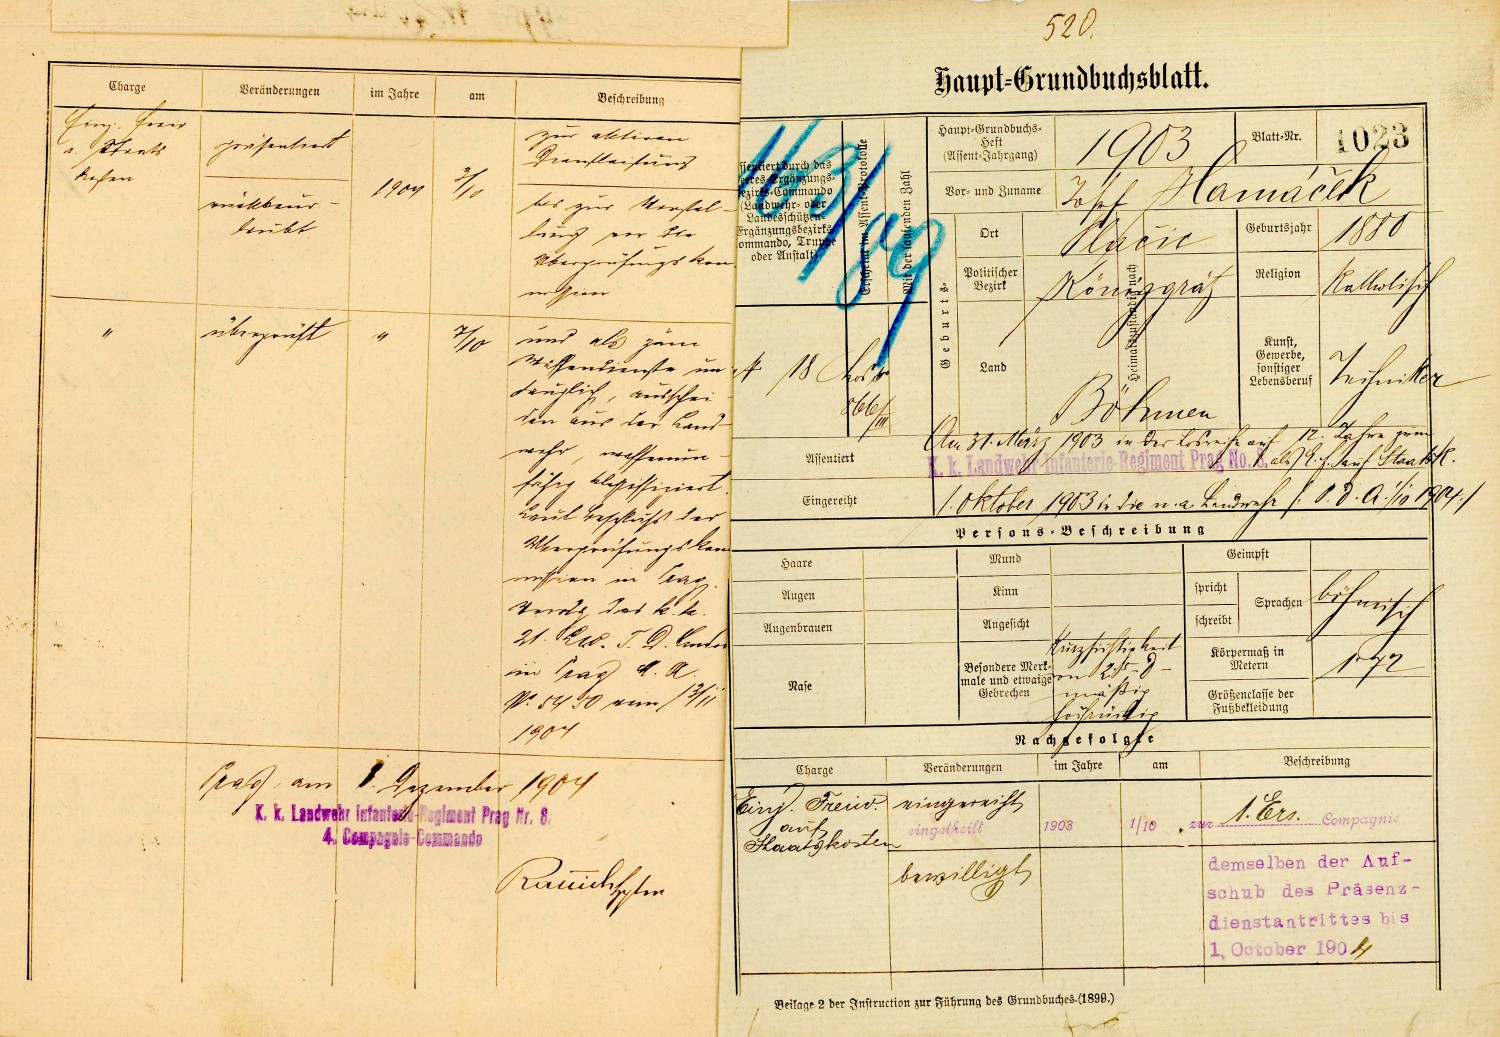 Charge
Veränderungen
im Jahre
am
Beschreibung
Einj. Freiw
a. Staats
kosten
präsentiert
zur aktiven
Dienstleistung
1904
3/10
rückbeur-
laubt
bis zur Vorstel-
lung vor die
Überprüfungskom
mission
"
überprüft
"
7/10
und als zum
Waffendienste un
tauglich, ausschei-
den aus der Land-
wehr, waffenun-
fähig klassifiziert.
Laut Beschluß der
Überprüfungskom
mission in Prag.
des k. k.
21. J. D.
in Prag M. A.
Nr. 5450 vom 12/11
1904
Prag, am 1. Dezember 1904
K. k. Landwehr Infanterie-Regiment Prag Nr. 8.
4. Compagnie-Commando
520.
Haupt-Grundbuchsblatt.
Assentiert durch das
Heeres-Ergänzungs-
bezirks-Commando
(Landwehr- oder
Landesschützen-
Ergänzungsbezirks-
commando, Truppe
oder Anstalt)
Erscheint im Assent-Protokolle
Mit der laufenden Zahl
163/09
18
Haupt-Grundbuchs-
Heft
(Assent-Jahrgang)
1903
Blatt-Nr.
1023
Vor- und Zuname
Josef Hamáček
Geburts-
Ort
Heimatszuständig nach
Geburtsjahr
1880
Politischer
Bezirk
Königgrätz
Religion
Katholisch
Land
Böhmen
Kunst,
Gewerbe,
sonstiger
Lebensberuf
Techniker
Assentiert
Am 31. März 1903 in der Losreihe auf 12 Jahre zum
K. k. Landwehr-Infanterie-Regiment Prag No. 8, als E. f. auf Staatsk.
Eingereiht
1. Oktober 1903 in die n. a. Landwehr /: P. D. A. 1/10 1904 :/
Persons-Beschreibung
Haare
Mund
Geimpft
Augen
Kinn
spricht
schreibt
Sprachen
böhmisch
Augenbrauen
Angesicht
Nase
Besondere Merk-
male und etwaige
Gebrechen
Kurzsichtigkeit
von 2.5 D
mäßig
Körpermaß in
Metern
1.72
Größenclasse der
Fußbekleidung
Nachgefolgte
Charge
Veränderungen
im Jahre
am
Beschreibung
Einj. Freiw.
auf
Staatskosten
eingereiht
eingetheilt
1903
1/10
zur 1. Ers. Compagnie
bewilligt
demselben der Auf-
schub des Präsenz-
dienstantrittes bis
1. October 1904
Beilage 2 der Instruction zur Führung des Grundbuches. (1899.)